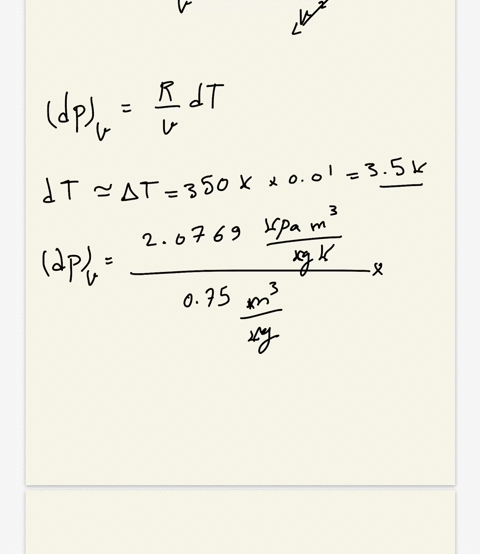 v
(dp)v = R/v dT
dT ≃ ΔT = 350 K x 0.01 = 3.5 K
(dp)v = 2.0769 kpa m³/kg K / 0.75 m³/kg x